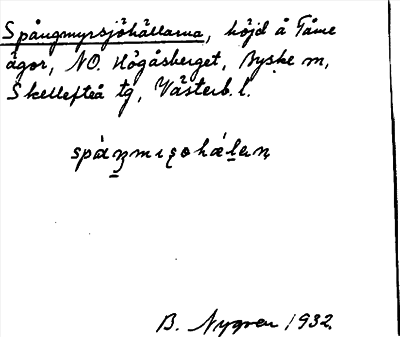 Spångmyrsjöhällarna, höjd å Fåme
ägor, NO. Högåsberget, Byske m,
Skellefteå tg, Västerb. l.
B. Nygren 1932.